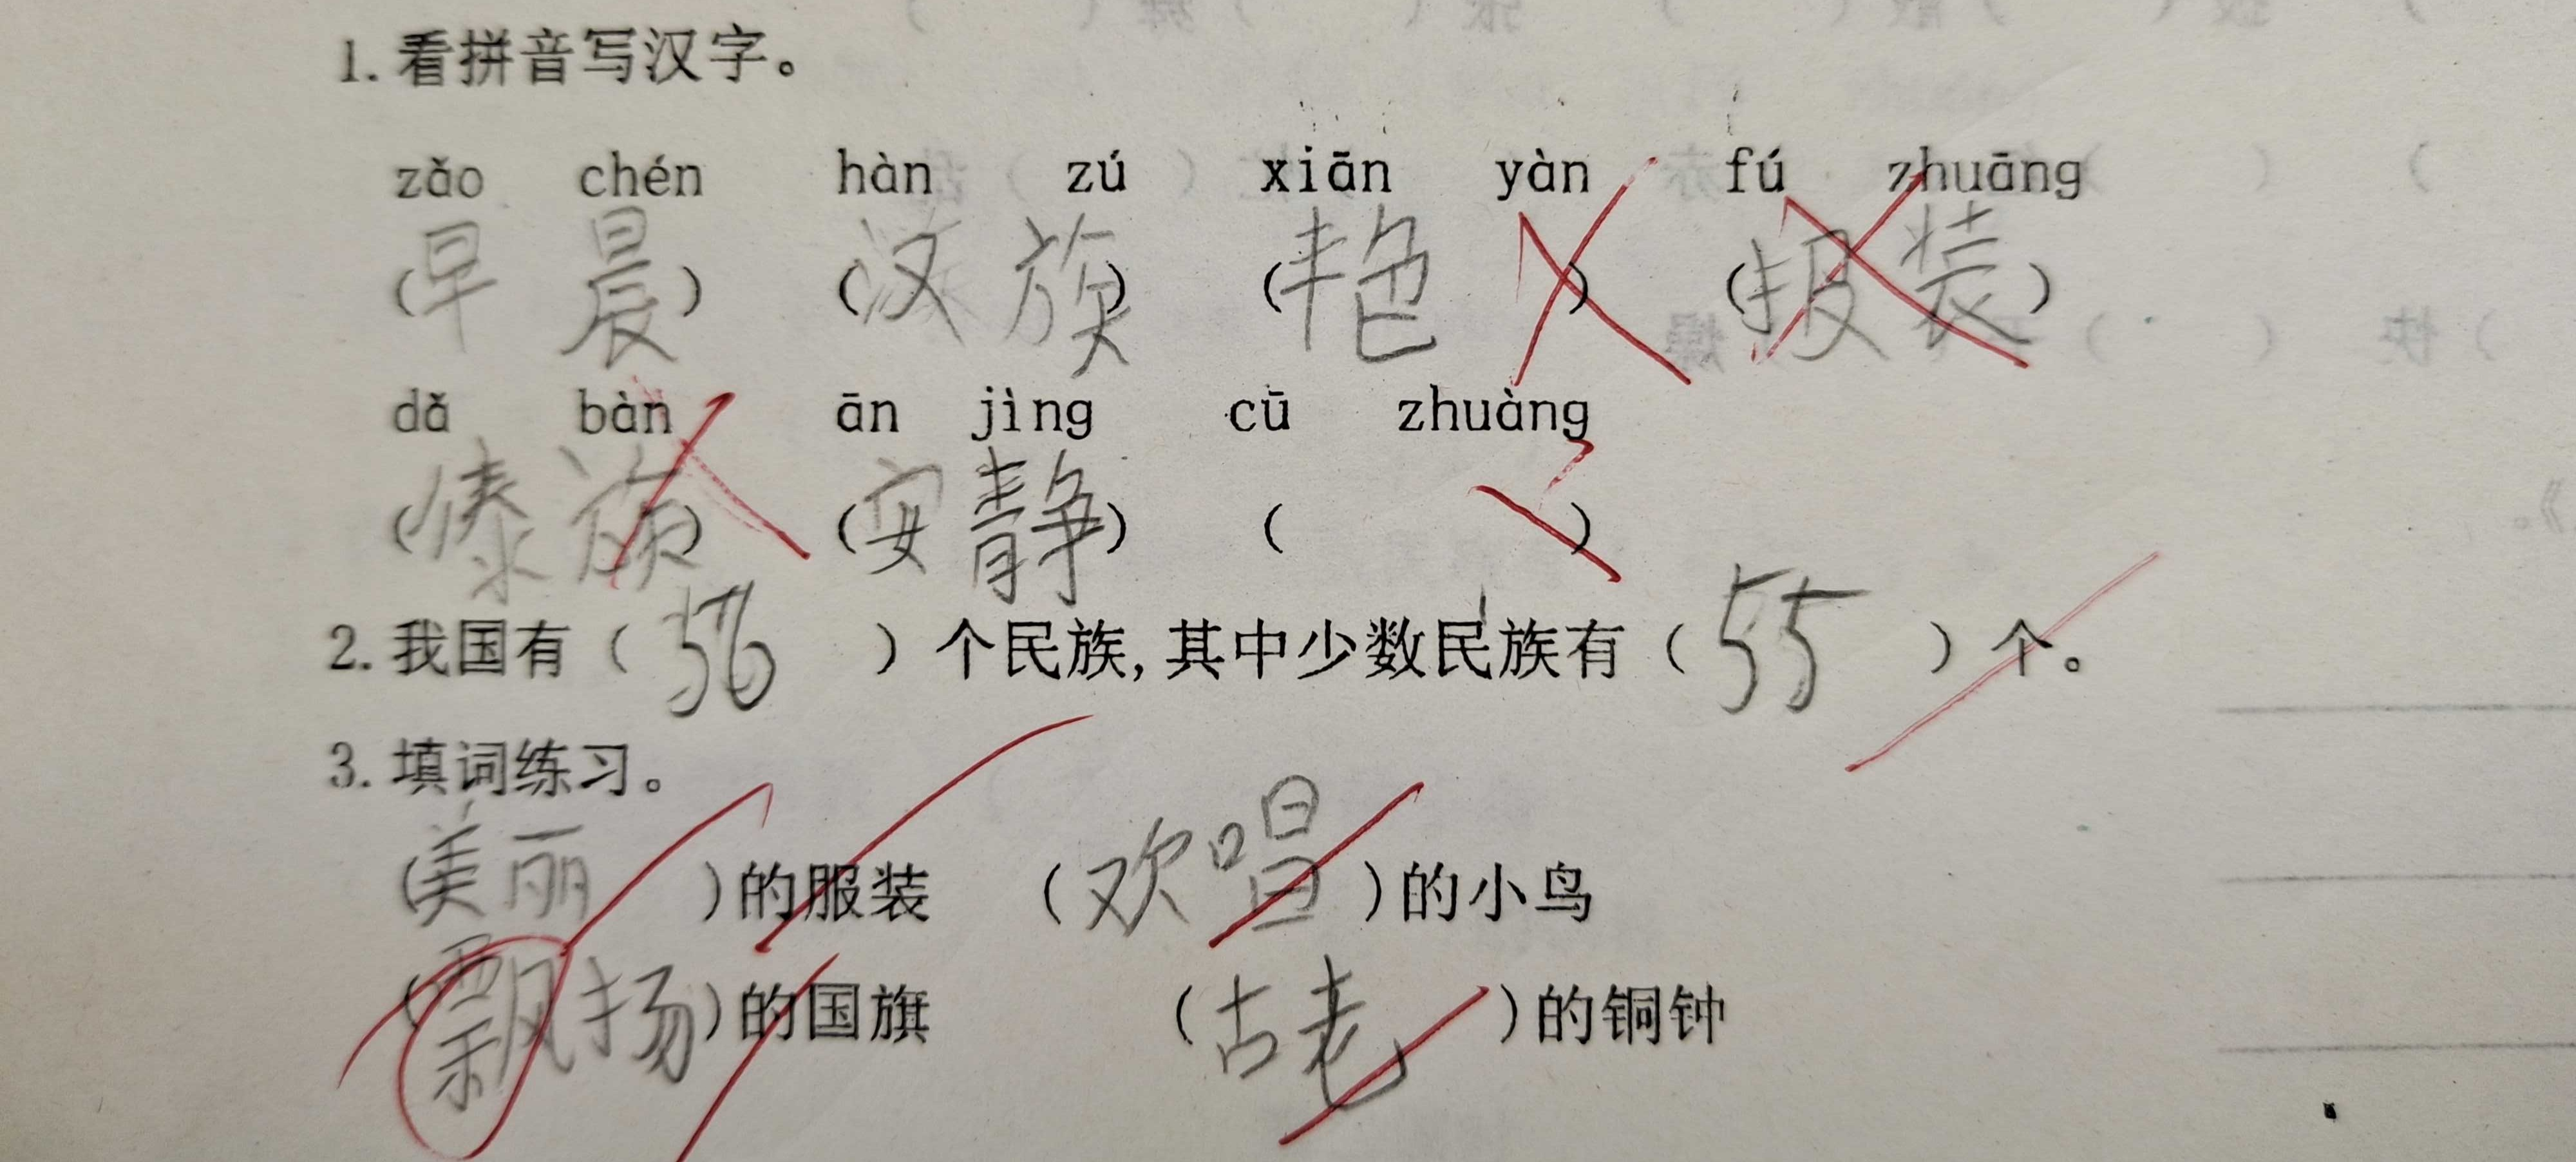 1. 看拼音写汉字。
zǎo chén hàn zú xiān yàn fú zhuāng
(早 晨) (汉 族) (艳 ) ( 装)
dǎ bàn ān jìng cū zhuàng
(傣 族) (安 静) ( )
2. 我国有( 56 )个民族,其中少数民族有( 55 )个。
3. 填词练习。
(美丽 )的服装 (欢唱 )的小鸟
(飘扬)的国旗 (古老 )的铜钟